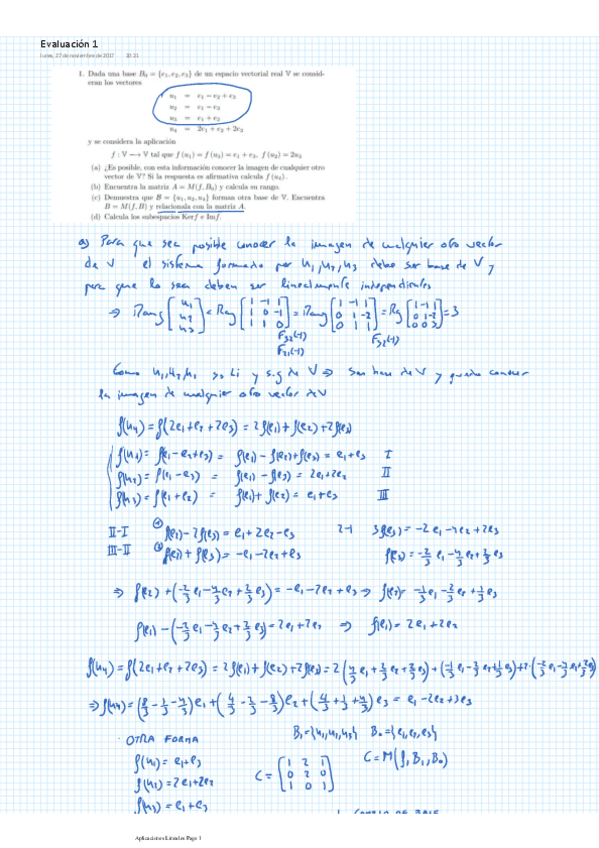 Evaluación 1
lunes, 27 de noviembre de 2017 20:21
1. Dada una base B₀ = {e₁, e₂, e₃} de un espacio vectorial real V se consid-
eran los vectores
u₁ = e₁ − e₂ + e₃
u₂ = e₁ − e₃
u₃ = e₁ + e₂
u₄ = 2e₁ + e₂ + 2e₃
y se considera la aplicación
f : V ⟶ V tal que f(u₁) = f(u₃) = e₁ + e₃, f(u₂) = 2u₃
(a) ¿Es posible, con esta información conocer la imagen de cualquier otro
vector de V? Si la respuesta es afirmativa calcula f(u₄).
(b) Encuentra la matriz A = M(f, B₀) y calcula su rango.
(c) Demuestra que B = {u₁, u₂, u₄} forman otra base de V. Encuentra
B = M(f, B) y relacionala con la matriz A.
(d) Calcula los subespacios Kerf e Imf.
a) Para que sea posible conocer la imagen de cualquier otro vector
de V el sistema formado por u₁, u₂, u₃ debe ser base de V y
para que lo sea deben ser linealmente independientes
⇒ Rang [u₁ u₂ u₃] = Rg [1 -1 1; 1 0 -1; 1 1 0] = Rang [1 -1 1; 0 1 -2; 0 1 1] = Rg [1 -1 1; 0 1 -2; 0 0 3] = 3
F₃₂(-1) F₃₂(-1)
F₂₁(-1)
Como u₁, u₂, u₃ so Li y s.g de V ⇒ san base de V y puedo conocer
la imagen de cualquier otro vector de V
f(u₄) = f(2e₁+e₂+2e₃) = 2f(e₁)+f(e₂)+2f(e₃)
f(u₁) = f(e₁-e₂+e₃) = f(e₁)-f(e₂)+f(e₃) = e₁+e₃ I
f(u₂) = f(e₁-e₃) = f(e₁)-f(e₃) = 2e₁+2e₂ II
f(u₃) = f(e₁+e₂) = f(e₁)+f(e₂) = e₁+e₃ III
II-I f(e₂)-2f(e₃) = e₁+2e₂-e₃ 2-1 3f(e₃) = -2e₁-4e₂+2e₃
III-II f(e₂)+f(e₃) = -e₁-2e₂+e₃ f(e₃) = -2/3 e₁-4/3 e₂+2/3 e₃
⇒ f(e₂)+(-2/3 e₁-4/3 e₂+2/3 e₃) = -e₁-2e₂+e₃ ⇒ f(e₂) = -1/3 e₁-2/3 e₂+1/3 e₃
f(e₁)-(-2/3 e₁-4/3 e₂+2/3 e₃) = 2e₁+2e₂ ⇒ f(e₁) = 2e₁+2e₂
f(u₄) = f(2e₁+e₂+2e₃) = 2f(e₁)+f(e₂)+2f(e₃) = 2(4/3 e₁+2/3 e₂+2/3 e₃)+(-1/3 e₁-2/3 e₂+1/3 e₃)+2·(-2/3 e₁-4/3 e₂+2/3 e₃)
⇒ f(u₄) = (8/3-1/3-4/3)e₁+(4/3-2/3-8/3)e₂+(4/3+1/3+4/3)e₃ = e₁-2e₂+3e₃
· OTRA FORMA B₁={u₁,u₂,u₃} B₀={e₁,e₂,e₃}
f(u₁) = e₁+e₃
f(u₂) = 2e₁+2e₂ C = (1 2 1; 0 2 0; 1 0 1) C = M(f, B₁, B₀)
f(u₃) = e₁+e₃
Aplicaciones Lineales Page 1